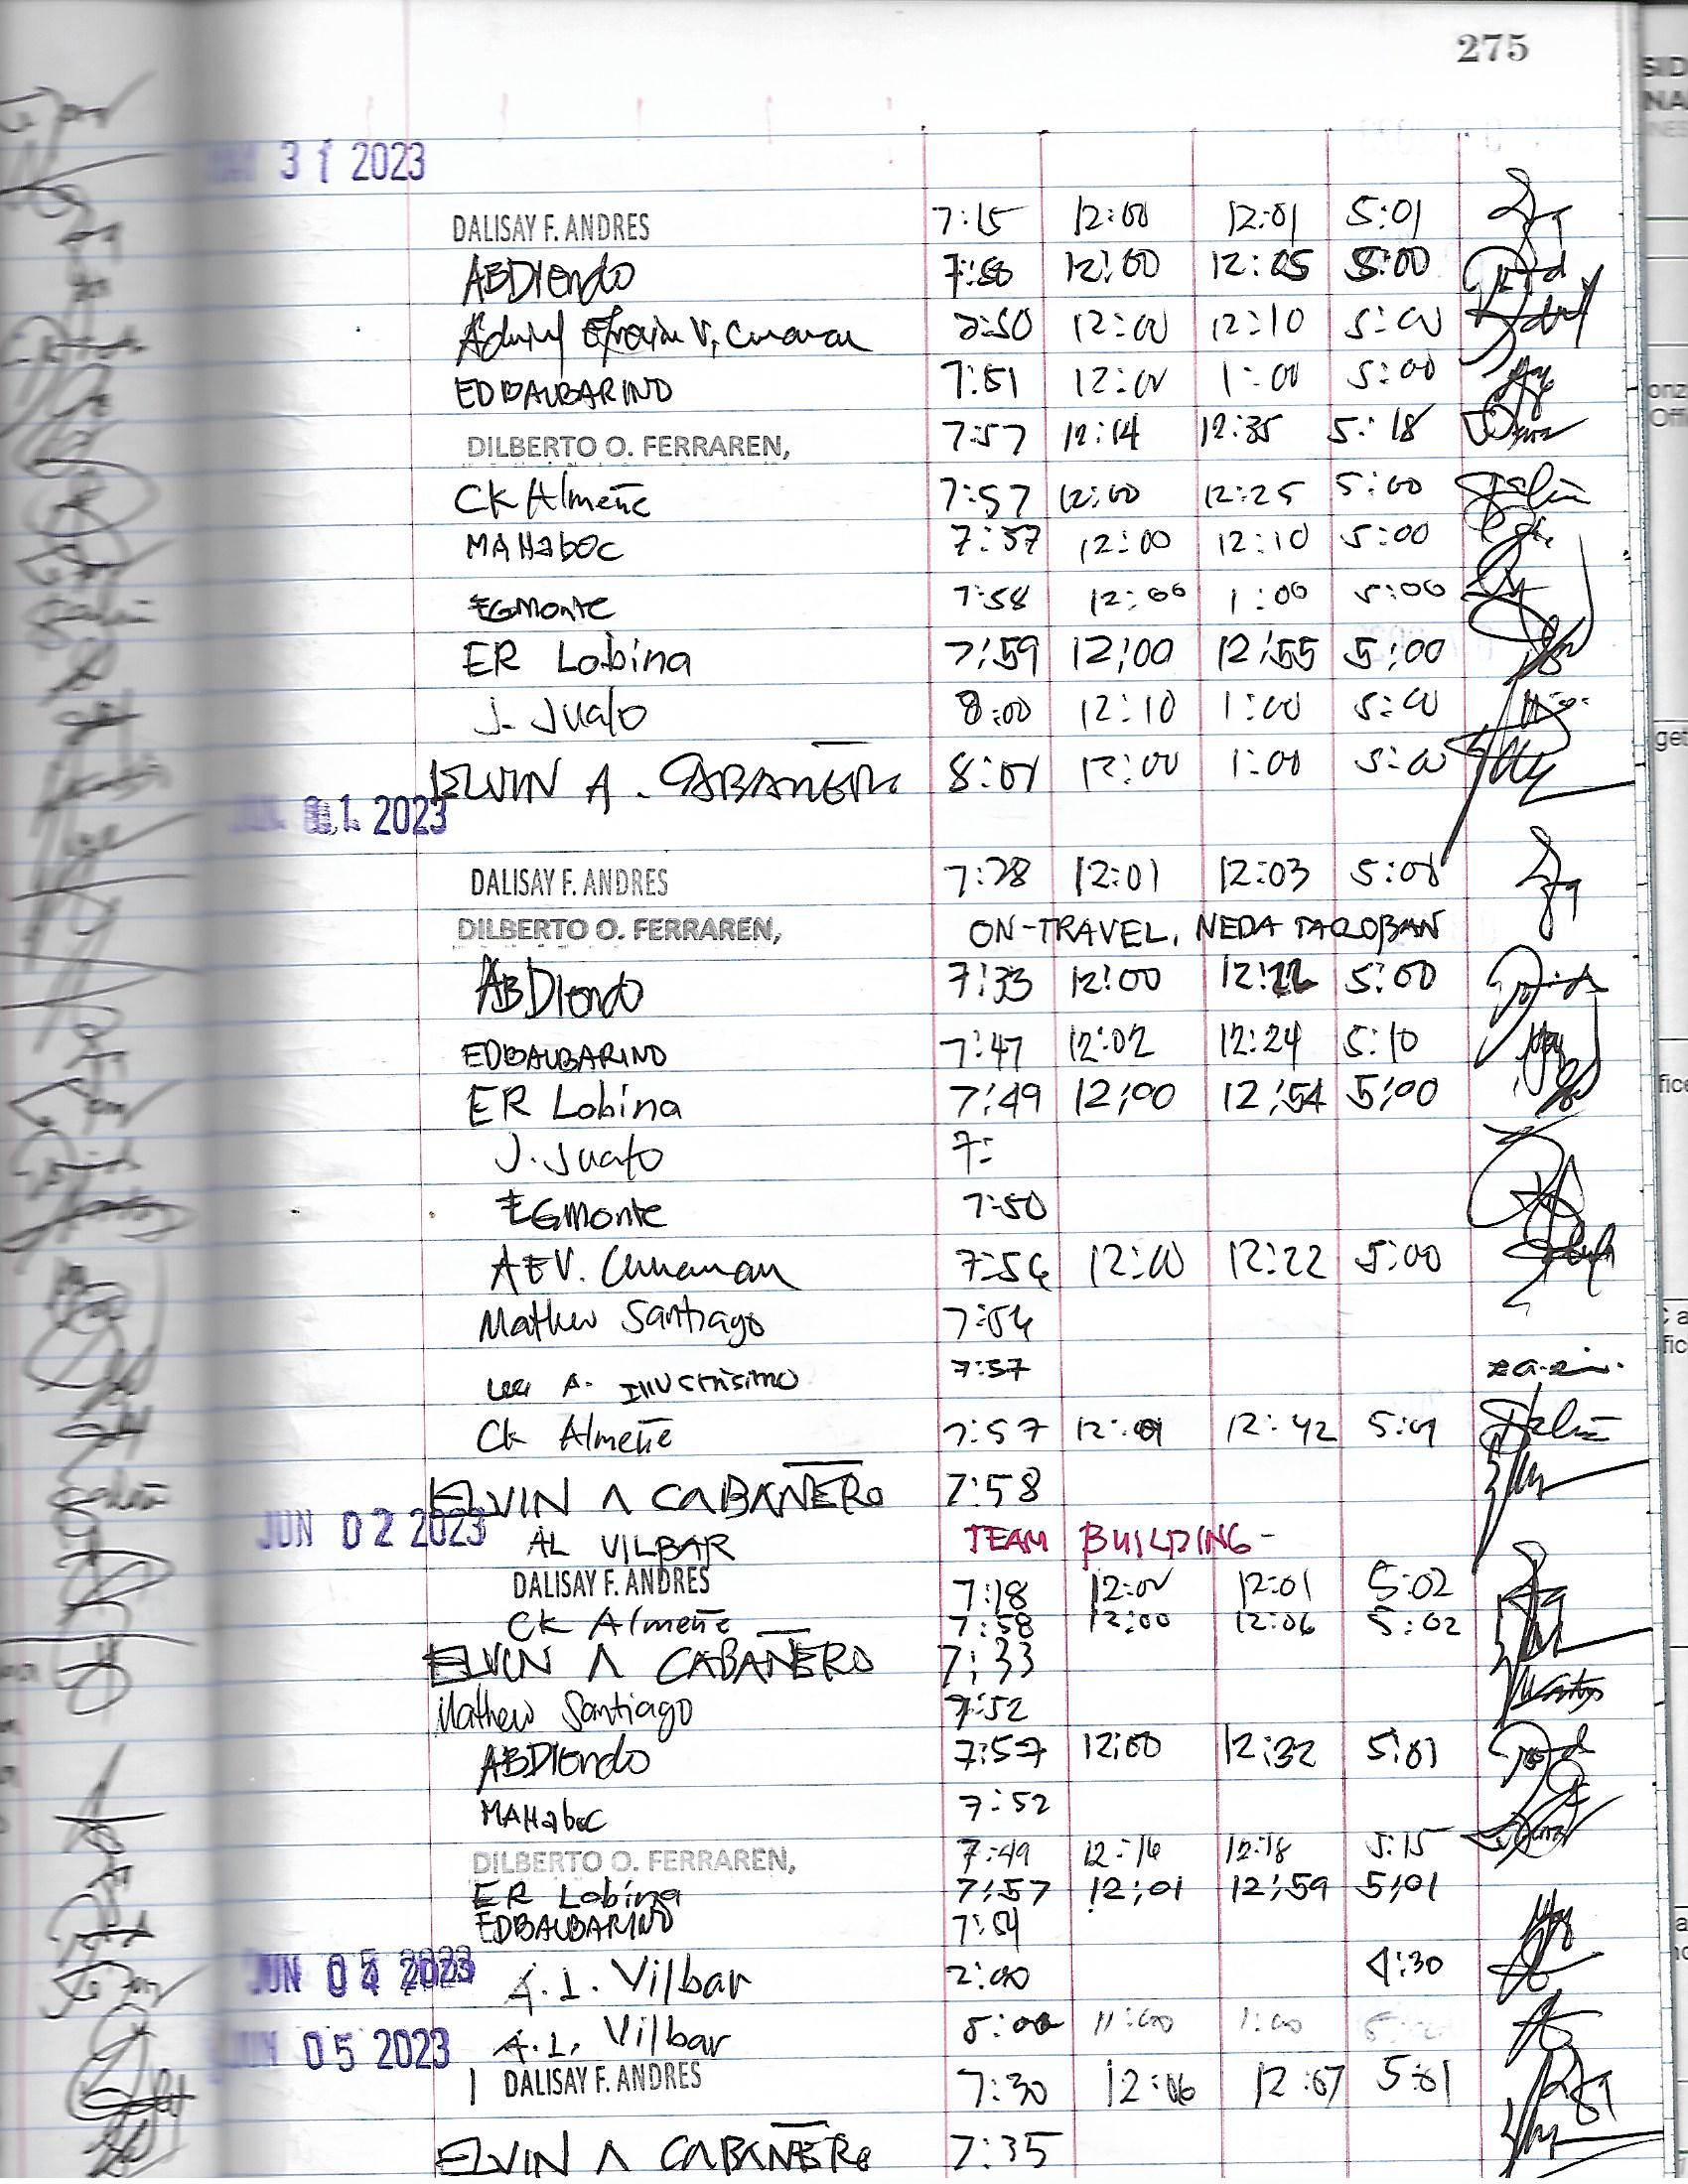 275
MAY 31 2023
DALISAY F. ANDRES 7:15 12:00 12:01 5:01
ABDiendo 7:50 12:00 12:05 5:00
Efraim V. Cunanan 7:50 12:00 12:10 5:00
EDBALBARINO 7:51 12:00 1:00 5:00
DILBERTO O. FERRAREN, 7:57 12:14 12:35 5:18
CK Almeñe 7:57 12:00 12:25 5:00
MAHaboc 7:57 12:00 12:10 5:00
EGMonte 7:58 12:00 1:00 5:00
ER Lobina 7:59 12:00 12:55 5:00
J. Juato 8:00 12:10 1:00 5:00
ELVIN A. CABAÑERO 8:01 12:00 1:00 5:00
JUN 01 2023
DALISAY F. ANDRES 7:28 12:01 12:03 5:01
DILBERTO O. FERRAREN, ON-TRAVEL, NEDA TACLOBAN
ABDiendo 7:33 12:00 12:22 5:00
EDBALBARINO 7:47 12:02 12:24 5:10
ER Lobina 7:49 12:00 12:54 5:00
J. Juato 7:
EGMonte 7:50
AEV. Cunanan 7:54 12:00 12:22 5:00
Mathew Santiago 7:54
A. Illustrisimo 7:57
Ck Almeñe 7:57 12:01 12:42 5:01
ELVIN A CABAÑERO 7:58
JUN 02 2023
AL VILBAR TEAM BUILDING-
DALISAY F. ANDRES 7:18 12:00 12:01 5:02
CK Almeñe 7:58 12:00 12:06 5:02
ELVIN A CABAÑERO 7:33
Mathew Santiago 7:52
ABDiendo 7:57 12:00 12:32 5:01
MAHaboc 7:52
DILBERTO O. FERRAREN, 7:49 12:16 12:18 5:15
ER Lobina 7:57 12:01 12:59 5:01
EDBALBARINO 7:54
JUN 04 2023 A.L. Vilbar 2:00 4:30
JUN 05 2023 A.L. Vilbar 8:00 11:00 1:00
DALISAY F. ANDRES 7:30 12:06 12:07 5:01
ELVIN A CABAÑERO 7:35